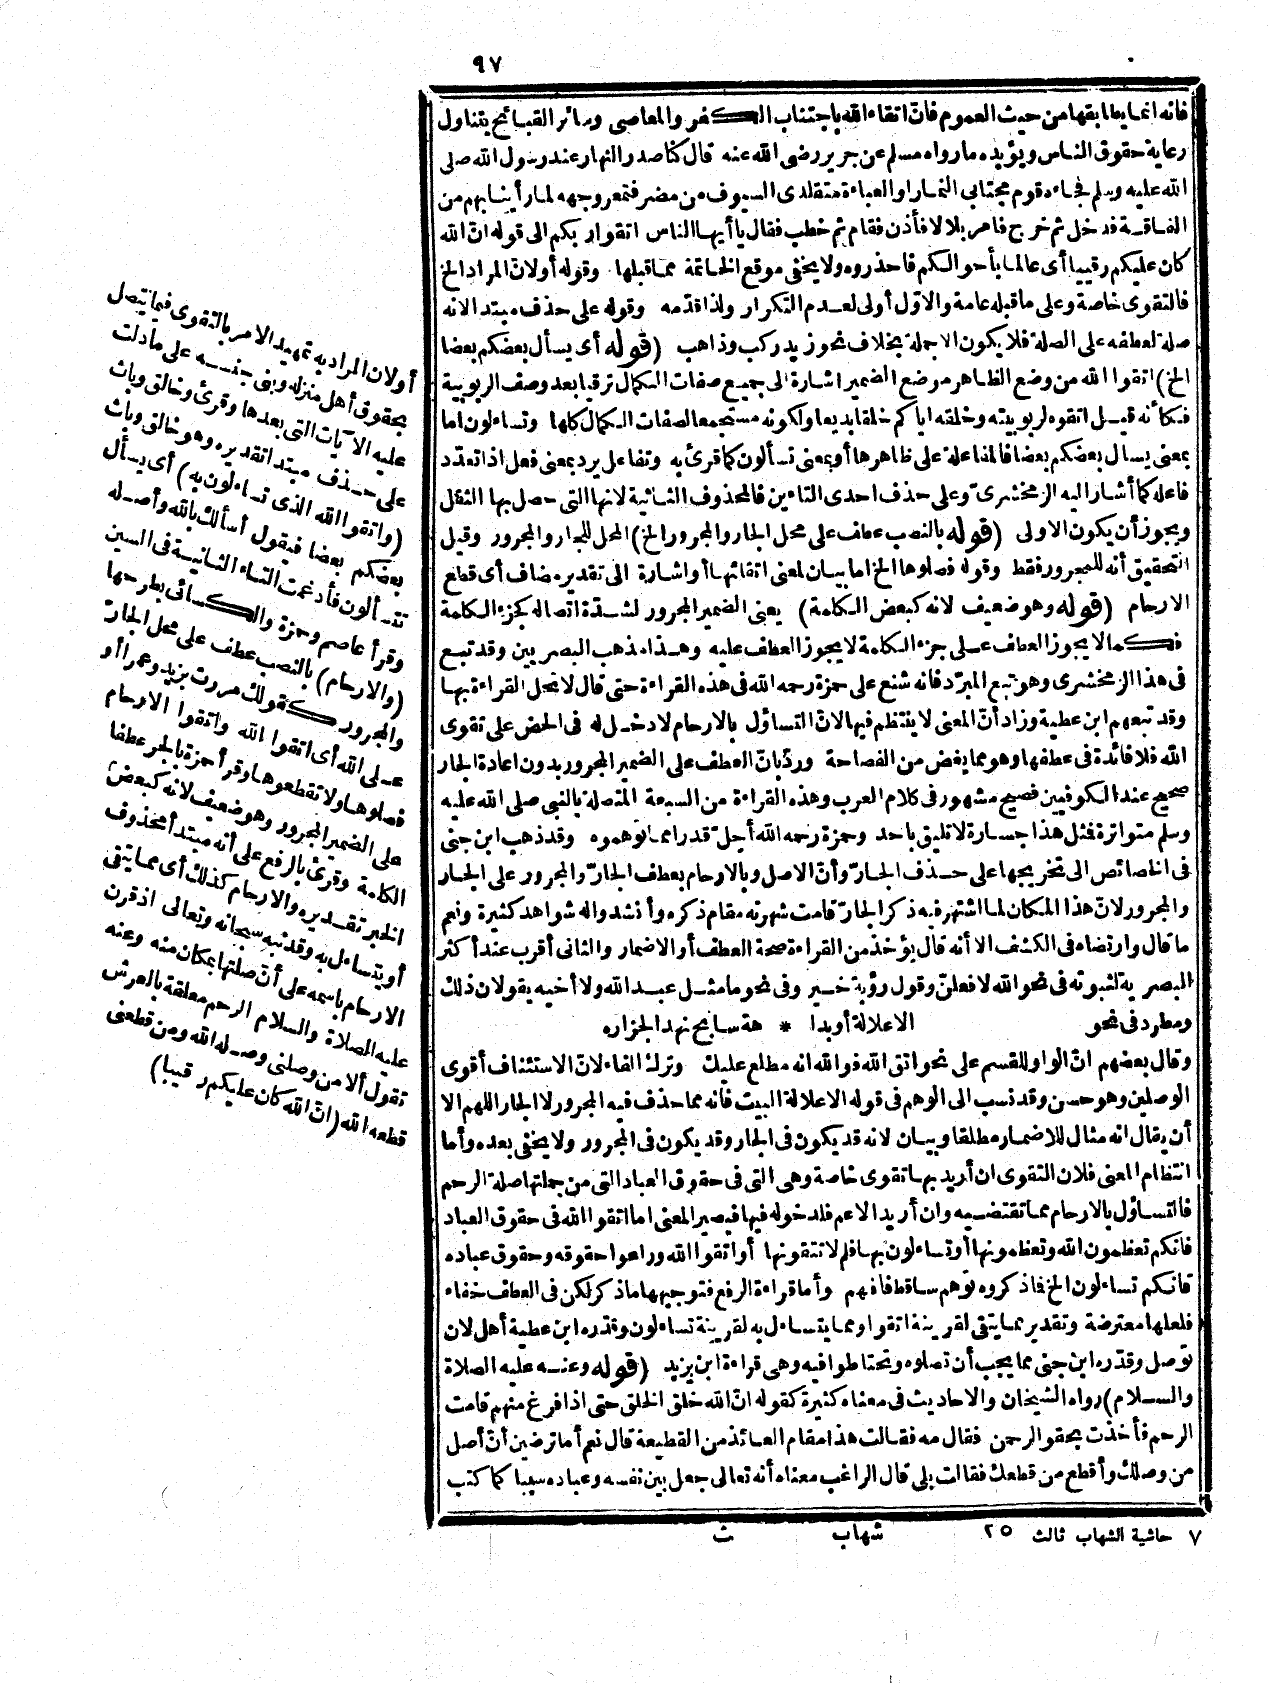 ٩٧
فانه انما يطابقها من حيث العموم فانّ اتقاء الله باجتناب الكفر والمعاصى وسائر القبائح يتناول
رعاية حقوق الناس ويؤيده ما رواه مسلم عن جرير رضى الله عنه قال كنا صدر النهار عند رسول الله صلى
الله عليه وسلم فجاءه قوم مجتابى النمار أو العباءة متقلدى السيوف من مضر فتمعر وجهه لما رأينا بهم من
الفاقة فدخل ثم خرج فأمر بلالا فأذن فقام ثم خطب فقال يا أيها الناس اتقوا ربكم الى قوله انّ الله
كان عليكم رقيبا أى عالما بأحوالكم فاحذروه ولا يخفى موقع الخاتمة مما قبلها وقوله أو لانّ المراد الخ
فالتقوى خاصة وعلى ما قبله عامة والاوّل أولى لعدم التكرار ولذا قدّمه وقوله على حذف مبتدا لانه
صلة لعطفه على الصلة فلا يكون الا جملة بخلاف نحو زيد ركب وذاهب (قوله أى يسأل بعضكم بعضا
الخ) اتقوا الله من وضع الظاهر موضع الضمير اشارة الى جميع صفات الكمال ترقيا بعد وصف الربوبية
فكأنه قيل اتقوه لربوبيته وخلقه اياكم خلقا بديعا ولكونه مستجمعا لصفات الكمال كلها وتساءلون اما
بمعنى يسأل بعضكم بعضا فالمفاعلة على ظاهرها أو بمعنى تسألون كما قرئ به وتفاعل يرد بمعنى فعل اذا تعدّد
فاعله كما أشار اليه الزمخشرىّ وعلى حذف احدى التاءين فالمحذوف الثانية لانها التى حصل بها الثقل
ويجوز أن يكون الاولى (قوله بالنصب عطف على محل الجار والمجرور الخ) المحل للجار والمجرور وقيل
التحقيق أنه للمجرور فقط وقوله فصلوها الخ اما بيان لمعنى اتقائها أو اشارة الى تقدير مضاف أى قطع
الارحام (قوله وهو ضعيف لانه كبعض الكلمة) يعنى الضمير المجرور لشدّة اتصاله كجزء الكلمة
فكما لا يجوز العطف على جزء الكلمة لا يجوز العطف عليه وهذا مذهب البصريين وقد تبع
فى هذا الزمخشرى وهو تبع المبرّد فانه شنع على حمزة رحمه الله فى هذه القراءة حتى قال لا تحل القراءة بها
وقد تبعهم ابن عطية وزاد أنّ المعنى لا ينتظم فيها لانّ التساؤل بالارحام لا دخل له فى الحض على تقوى
الله فلا فائدة فى عطفها وهو مما يغض من الفصاحة وردّ بانّ العطف على الضمير المجرور بدون اعادة الجار
صحيح عند الكوفيين فصيح مشهور فى كلام العرب وهذه القراءة من السبعة المتصلة بالنبى صلى الله عليه
وسلم متواترة فمثل هذا جسارة لا تليق باحد وحمزة رحمه الله أجلّ قدرا مما توهموه وقد ذهب ابن جنى
فى الخصائص الى تخريجها على حذف الجارّ وأنّ الاصل وبالارحام بعطف الجارّ والمجرور على الجار
والمجرور لانّ هذا المكان لما اشتهر فيه ذكر الجارّ قامت شهرته مقام ذكره وأنشد واله شواهد كثيرة ونعم
ما قال وارتضاه فى الكشف الا أنه قال يؤخذ من القراءة صحة العطف أو الاضمار والثانى أقرب عند أكثر
البصرية لثبوته فى نحو الله لافعلنّ وقول رؤبة خير وفى نحو ما مثل عبد الله ولا أخيه يقولان ذلك
ومطرد فى نحو الا علالة أو بدا * هة سابح نهد الجزاره
وقال بعضهم انّ الواو للقسم على نحو اتق الله فوالله انه مطلع عليك وترك الفاء لانّ الاستئناف أقوى
الوصلين وهو حسن وقد نسب الى الوهم فى قوله الا علالة البيت فانه مما حذف فيه المجرور لا الجار اللهم الا
أن يقال انه مثال للاضمار مطلقا وبيان لانه قد يكون فى الجار وقد يكون فى المجرور ولا يخفى بعده وأما
انتظام المعنى فلان التقوى ان أريد بها تقوى خاصة وهى التى فى حقوق العباد التى من جملتها صلة الرحم
فالتساؤل بالارحام مما تقتضيه وان أريد الاعم فلدخوله فيها فيصير المعنى اما اتقوا الله فى حقوق العباد
فانكم تعظمون الله وتعظمونها أو تساءلون بها فلم لا تتقونها أو اتقوا الله وراعوا حقوقه وحقوق عباده
فانكم تساءلون الخ فما ذكروه توهم ساقط فافهم وأما قراءة الرفع فتوجيهها ما ذكر لكن فى العطف خفاء
فلعلها معترضة وتقدير مما يتقى لقرينة اتقوا ومما يتساءل به لقرينة تساءلون وقدّره ابن عطية أهل لان
توصل وقدّره ابن جنى مما يجب أن تصلوه وتحتاطوا فيه وهى قراءة ابن يزيد (قوله وعنه عليه الصلاة
والسلام) رواه الشيخان والاحاديث فى معناه كثيرة كقوله انّ الله خلق الخلق حتى اذا فرغ منهم قامت
الرحم فأخذت بحقو الرحمن فقال مه فقالت هذا مقام العائذ من القطيعة قال نعم أما ترضين أنّ أصل
من وصلك وأقطع من قطعك فقالت بلى قال الراغب معناه أنه تعالى جعل بين نفسه وعباده سببا كما كتب
٧ حاشية الشهاب ثالث ٢٥ شهاب ث
أو لان المراد به تمهيد الامر بالتقوى فيما يتصل
بحقوق أهل منزله وبنى جنسه على ما دلت
عليه الآيات التى بعدها وقرئ وخالق وباث
على حذف مبتدا تقديره وهو خالق وباث
(واتقوا الله الذى تساءلون به) أى يسأل
بعضكم بعضا فيقول أسألك بالله وأصله
تتسألون فأدغمت التاء الثانية فى السين
وقرأ عاصم وحمزة والكسائى بطرحها
(والارحام) بالنصب عطف على محل الجارّ
والمجرور كقولك مررت بزيد وعمرا أو
على الله أى اتقوا الله واتقوا الارحام
فصلوها ولا تقطعوها وقرأ حمزة بالجر عطفا
على الضمير المجرور وهو ضعيف لانه كبعض
الكلمة وقرئ بالرفع على أنه مبتدأ محذوف
الخبر تقديره والارحام كذلك أى مما يتقى
أو يتساءل به وقد نبه سبحانه وتعالى اذ قرن
الارحام باسمه على أنّ صلتها بمكان منه وعنه
عليه الصلاة والسلام الرحم معلقة بالعرش
تقول ألا من وصلنى وصله الله ومن قطعنى
قطعه الله (انّ الله كان عليكم رقيبا)